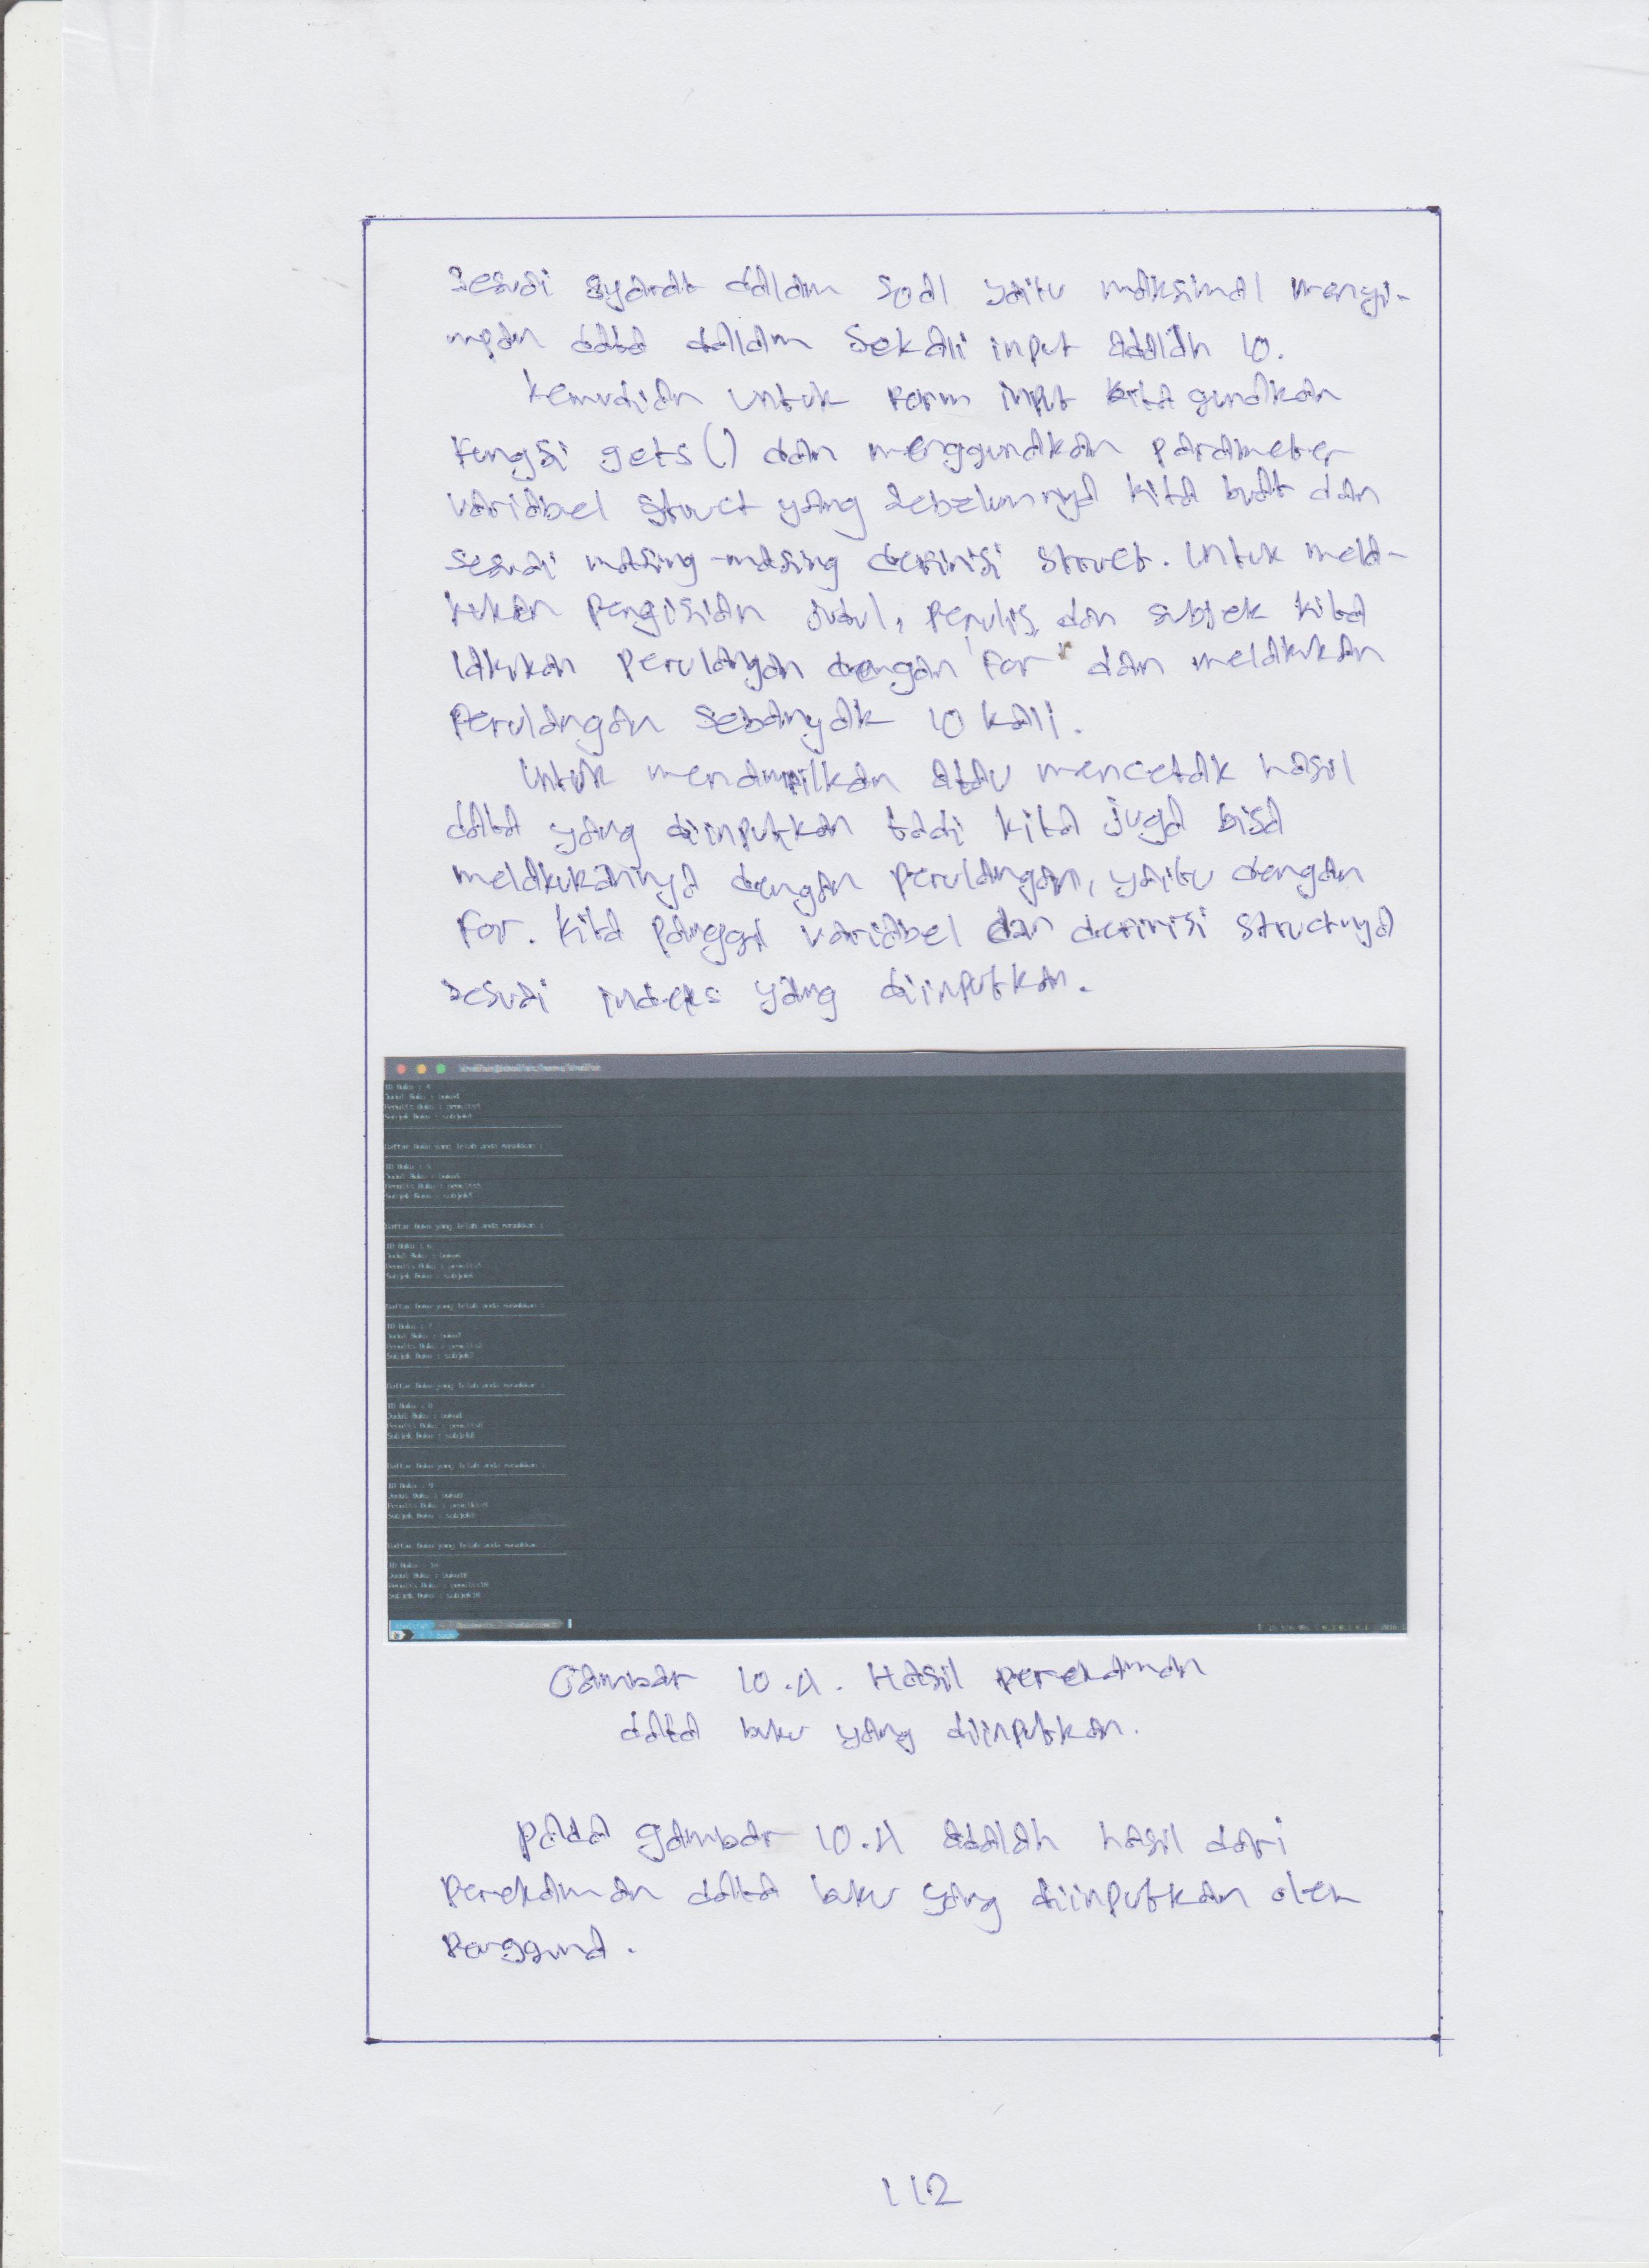 Sesuai syarat dalam soal yaitu maksimal menyi-
mpan data dalam sekali input adalah 10.
Kemudian untuk form input kita gunakan
fungsi gets() dan menggunakan parameter
variabel struct yang sebelumnya kita buat dan
sesuai masing-masing definisi struct. Untuk mela-
kukan pengisian judul, penulis, dan subjek kita
lakukan perulangan dengan "for" dan melakukan
perulangan sebanyak 10 kali.
Untuk menampilkan atau mencetak hasil
data yang diinputkan tadi kita juga bisa
melakukannya dengan perulangan, yaitu dengan
for. Kita panggil variabel dan definisi structnya
sesuai indeks yang diinputkan.
ID Buku : 4
Judul Buku : buku4
Penulis Buku : penulis4
Subjek Buku : subjek4
Daftar Buku yang telah anda masukkan :
ID Buku : 5
Judul Buku : buku5
Penulis Buku : penulis5
Subjek Buku : subjek5
Daftar Buku yang telah anda masukkan :
ID Buku : 6
Judul Buku : buku6
Penulis Buku : penulis6
Subjek Buku : subjek6
Daftar Buku yang telah anda masukkan :
ID Buku : 7
Judul Buku : buku7
Penulis Buku : penulis7
Subjek Buku : subjek7
Daftar Buku yang telah anda masukkan :
ID Buku : 8
Judul Buku : buku8
Penulis Buku : penulis8
Subjek Buku : subjek8
Daftar Buku yang telah anda masukkan :
ID Buku : 9
Judul Buku : buku9
Penulis Buku : penulis9
Subjek Buku : subjek9
Daftar Buku yang telah anda masukkan :
ID Buku : 10
Judul Buku : buku10
Penulis Buku : penulis10
Subjek Buku : subjek10
Gambar 10.4. Hasil perekaman
data buku yang diinputkan.
Pada gambar 10.4 adalah hasil dari
perekaman data buku yang diinputkan oleh
pengguna.
112